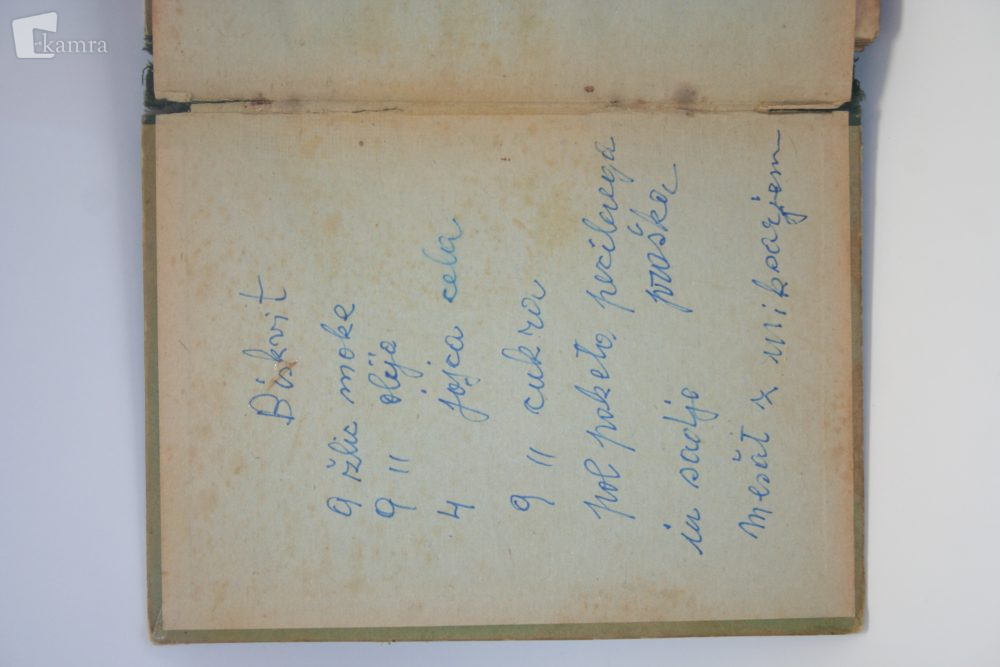 Biskvit
9 žlic moke
9 " olja
4 jajca cela
9 " cukra
pol paketa pecilnega
praška
in sadje
mešat z miksarjem
kamra